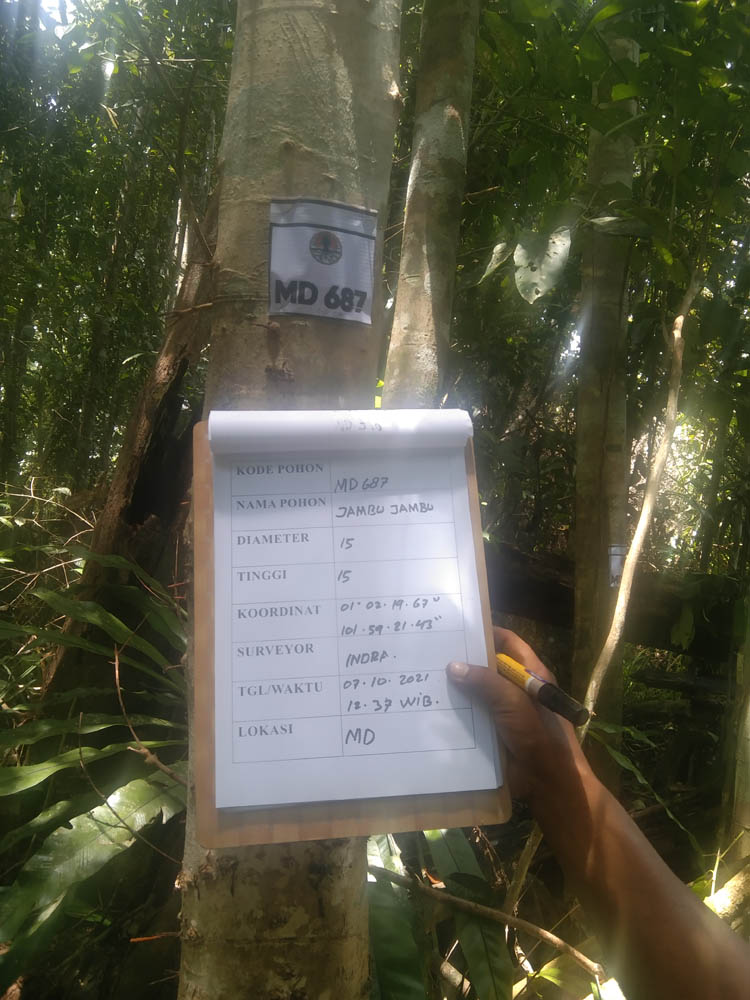 MD 687
KODE POHON MD 687
NAMA POHON JAMBU JAMBU
DIAMETER 15
TINGGI 15
KOORDINAT 01° 02 · 19 · 67"
101 · 59 · 21 · 43"
SURVEYOR INDRA.
TGL/WAKTU 07 · 10 · 2021
12 · 37 WIB.
LOKASI MD